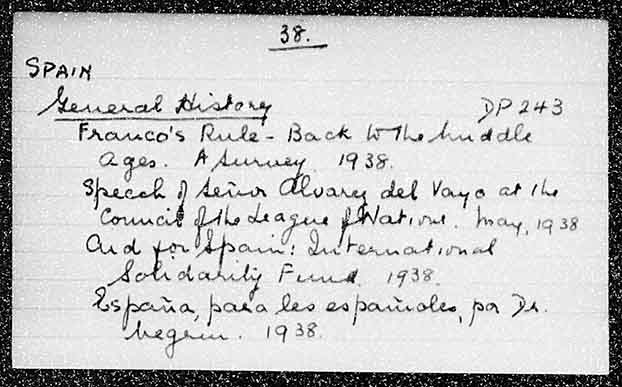 38.
SPAIN
General History DP 243
Franco's Rule - Back to the middle
ages. A survey 1938.
Speech of Señor Alvarez del Vayo at the
Council of the League of Nations. May, 1938
Aid for Spain: International
Solidarity Fund. 1938.
España, para les españoles, por Dr.
Negrin. 1938.